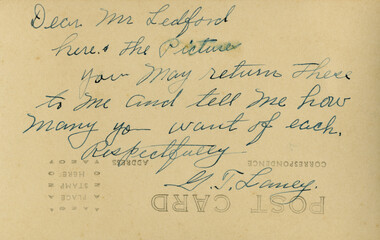 Dear Mr Ledford
here's the Picture
you May return These
to Me and tell Me how
Many yo want of each.
Respectfully
G. T. Laney.
CORRESPONDENCE
ADDRESS
POST CARD
PLACE
STAMP
HERE